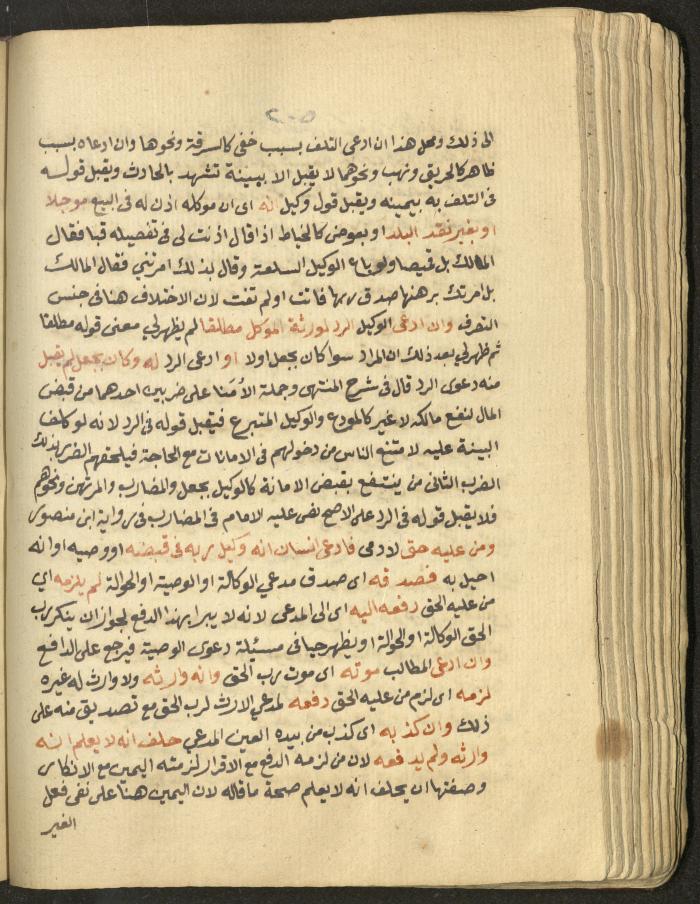 ٢٠٥
الى ذلك ومحل هذا ان ادعى التلف بسبب خفي كالسرقة ونحوها وان ادعاه بسبب
ظاهر كالحريق ونهب ونحوهما لا يقبل الا ببينة تشهد بالحادث ويقبل قوله
في التلف به بيمينه ويقبل قول وكيل انه اي ان موكله اذن له في البيع موجلا
او بغير نقد البلد او بعوض كالخياط اذا قال اذنت لي في تفصيله قبا فقال
المالك بل قميصا ولو باع الوكيل السلعة وقال بذلك امرتني فقال المالك
بل امرتك برهنها صدق ربها فاتت او لم تفت لان الاختلاف هنا في جنس
التصرف وان ادعى الوكيل الرد لورثة الموكل مطلقا لم يظهر لي معنى قوله مطلقا
ثم ظهر لي بعد ذلك ان المراد سوا كان بجعل اولا او ادعى الرد له وكان بجعل لم يقبل
منه دعوى الرد قال في شرح المنتهى وجملة الأمنا على ضربين احدهما من قبض
المال لنفع مالكه لا غير كالمودع والوكيل المتبرع فيقبل قوله في الرد لانه لو كلف
البينة عليه لا متنع الناس من دخولهم في الامانات مع الحاجة فيلحقهم الضرر بذلك
الضرب الثاني من ينتفع بقبض الامانة كالوكيل بجعل والمضارب والمرتهن ونحوهم
فلا يقبل قوله في الرد على الاصح نص عليه الامام في المضارب في رواية ابن منصور
ومن عليه حق لادمي فادعى انسان انه وكيل ربه في قبضه او وصيه او انه
احيل به فصدقه اي صدق مدعي الوكالة او الوصية او الحوالة لم يلزمه اي
من عليه الحق دفعه اليه اي الى المدعي لانه لا يبرا بهذا الدفع لجواز ان ينكر رب
الحق الوكالة او الحوالة او يظهر حيا في مسئلة دعوى الوصية فيرجع على الدافع
وان ادعى المطالب موته اي موت رب الحق وانه وارثه ولا وارث له غيره
لزمه اي لزم من عليه الحق دفعه لمدعي الارث لرب الحق مع تصديق منه على
ذلك وان كذبه اي كذب من بيده العين المدعي حلف انه لا يعلم انه
وارثه ولم يدفعه لان من لزمه الدفع مع الاقرار لزمته اليمين مع الانكار
وصفتها ان يحلف انه لا يعلم صحة ما قاله لان اليمين هنا على نفي فعل
الغير